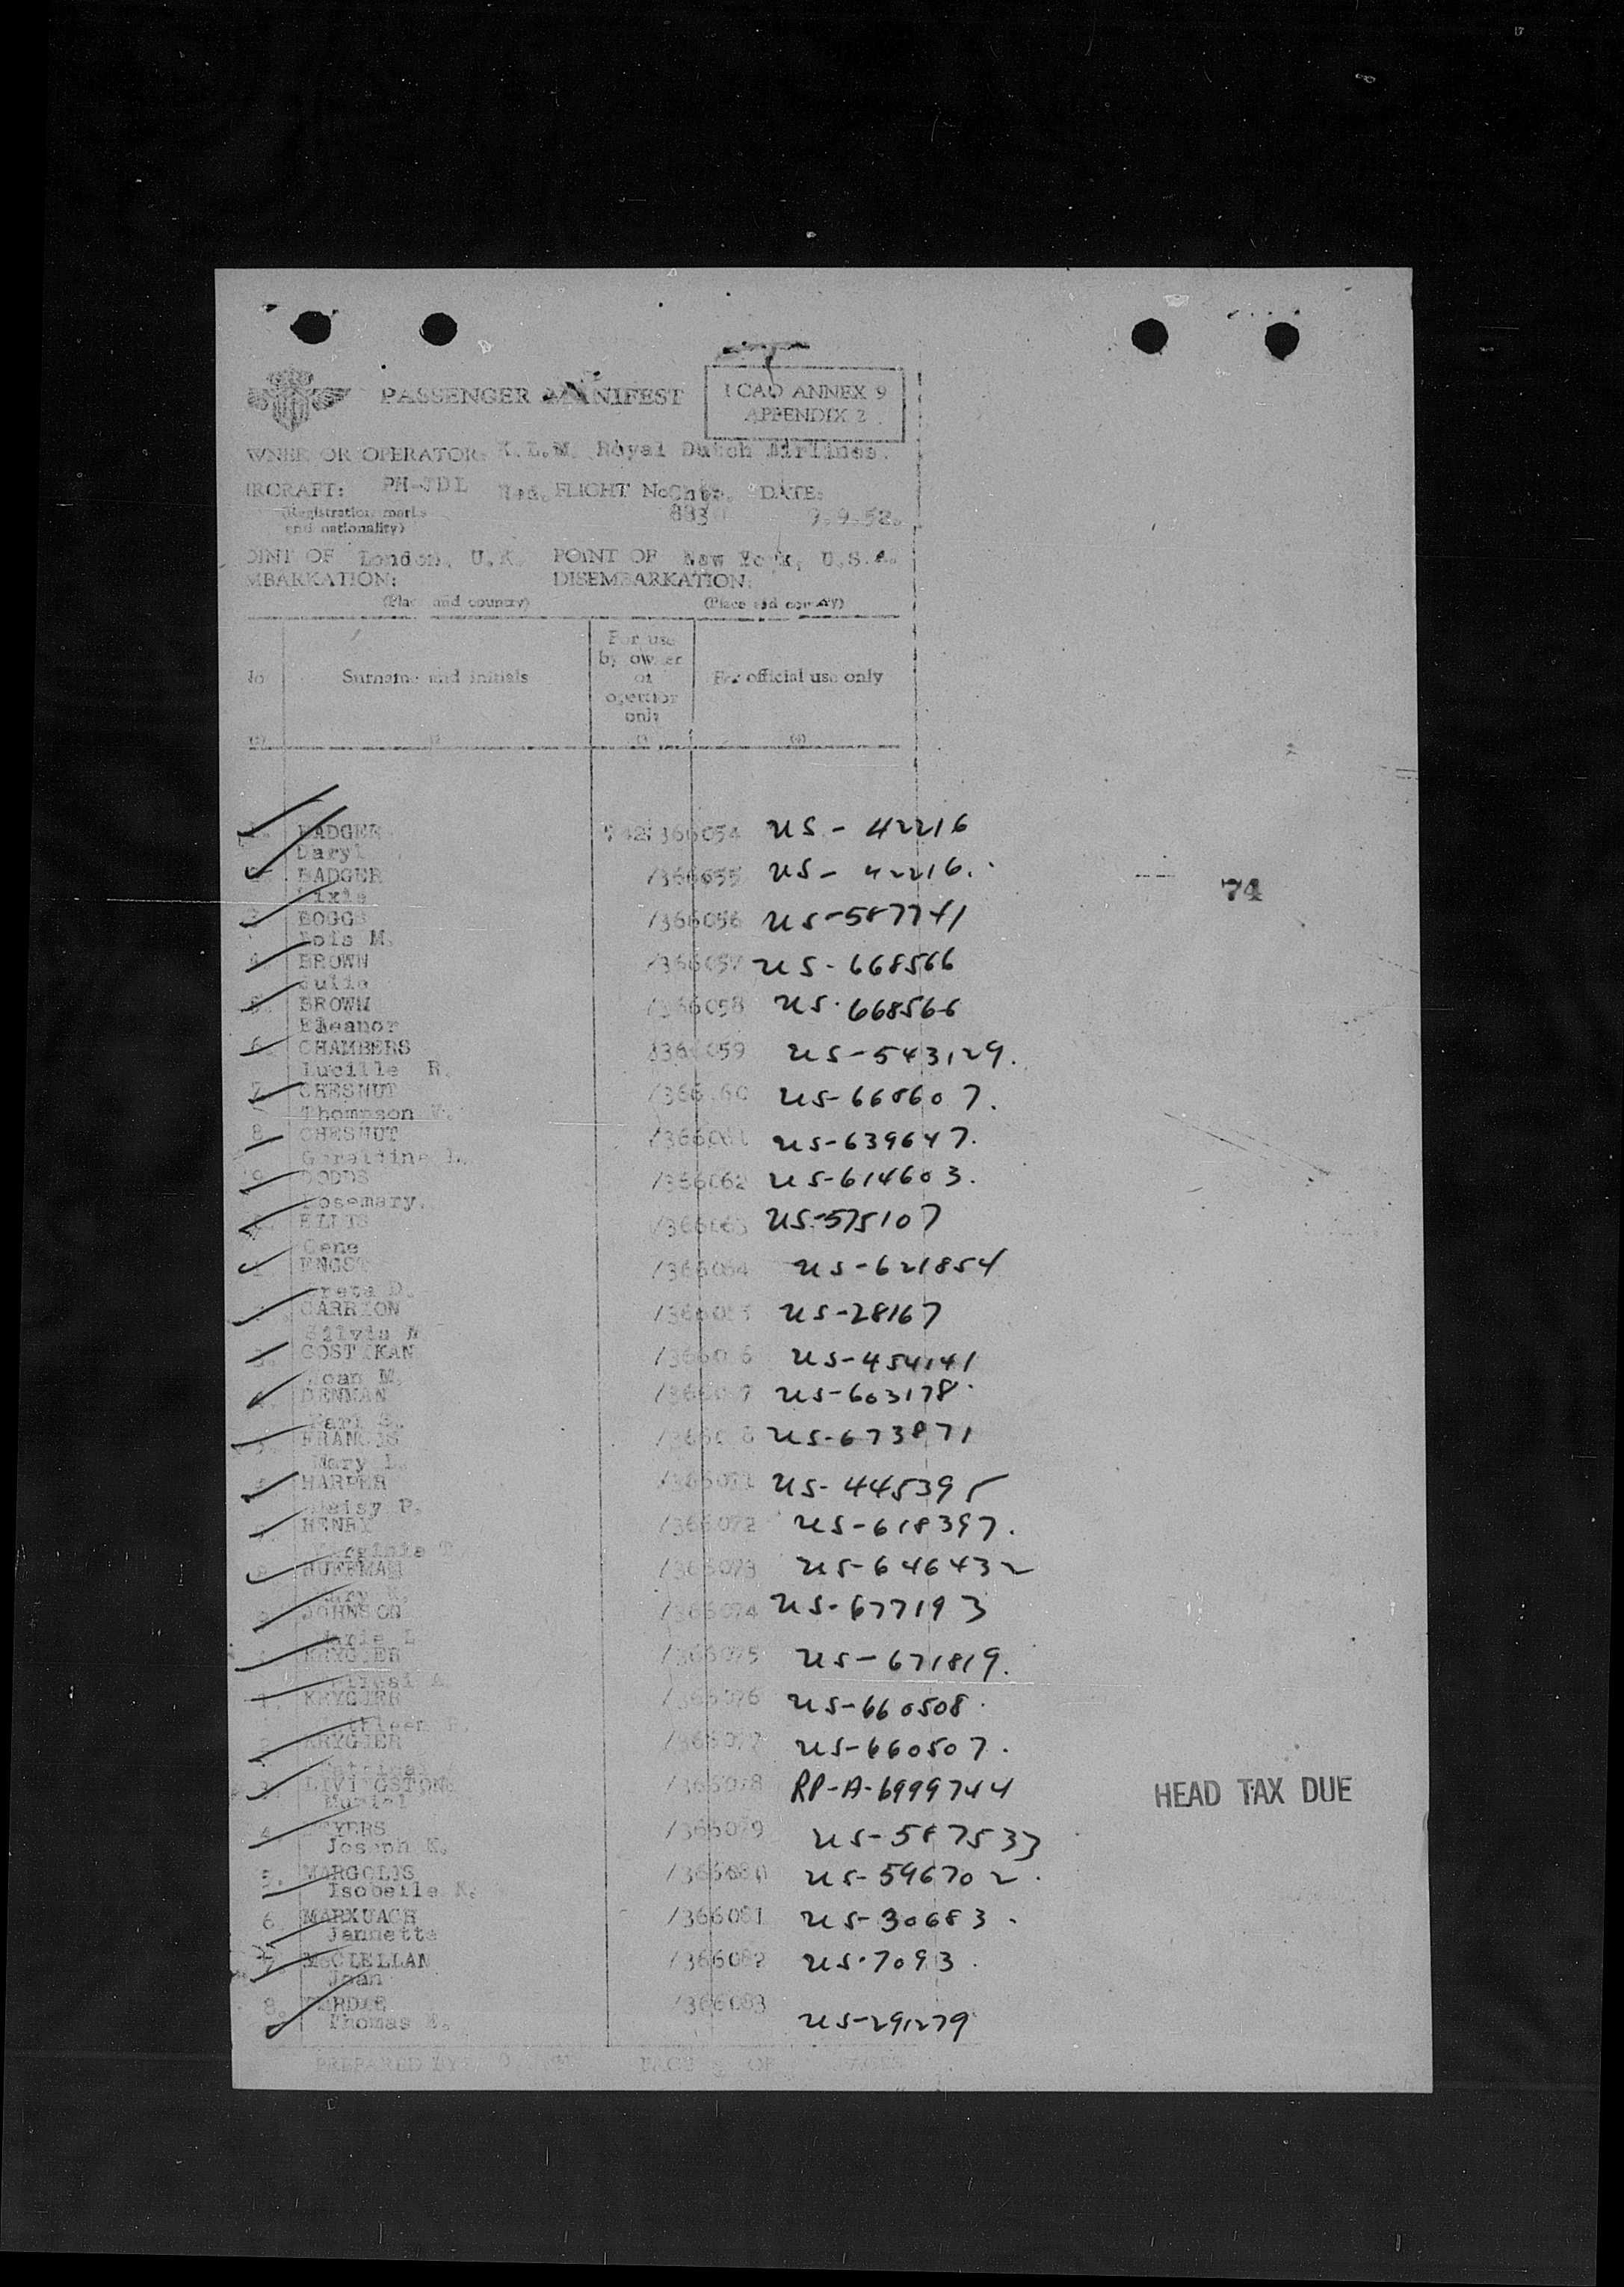 PASSENGER MANIFEST
ICAO ANNEX 9
APPENDIX 2
WNER OR OPERATOR: K.L.M. Royal Dutch Airlines.
IRCRAFT: PH-TDL Ned. FLIGHT No Chtr. DATE:
(Registration marks
and nationality)
883 9.9.52.
OINT OF London, U.K. POINT OF New York, U.S.A.
MBARKATION: DISEMBARKATION:
(Place and country) (Place and country)
No Surname and initials For use by owner or operator only For official use only
(1) (2) (3) (4)
1. BADGER 366054 US - 42216
Daryl
2. BADGER /366055 US - 42216.
Dixie
74
3. BOGGS /366056 US-587741
Lois M.
4. BROWN /366057 US-668566
Julia
5. BROWN /366058 US-668566
Eleanor
6. CHAMBERS 366059 US-543129.
Lucille R.
7. CHESNUT /366060 US-668607.
Thompson
8. CHESNUT /366061 US-639647.
Geraldine L.
9. DODDS /366062 US-614603.
Rosemary.
ELLIS /366063 US-575107
Gene
ENGST /366064 US-621854
Greta D.
CARRION US-28167
Silvia M
3. COSTIKAN US-454141
Joan M.
DENMAN US-603178.
FRANCIS US-673871
Mary L.
HARPER US-445395
Daisy P.
HENRY /366072 US-618397.
Virginia T
HUFFMAN /366073 US-646432
Mary K.
JOHNSON /366074 US-677193
Marie L
KRYGIER /366075 US-671819.
KRYGIER /366076 US-660508.
Kathleen P.
KRYGIER /366077 US-660507.
3. LIVINGSTON /366078 RP-A-6999744 HEAD TAX DUE
Muriel
4. /366079 US-587533
Joseph K.
5. MARGOLIS /366080 US-596702.
Isobelle K.
6. MARXUACH /366081 US-30683.
Jannette
7. McCLELLAN /366082 US-7093.
Joan
8. /366083
Thomas E. US-291279
PREPARED BY PAGE OF PAGES